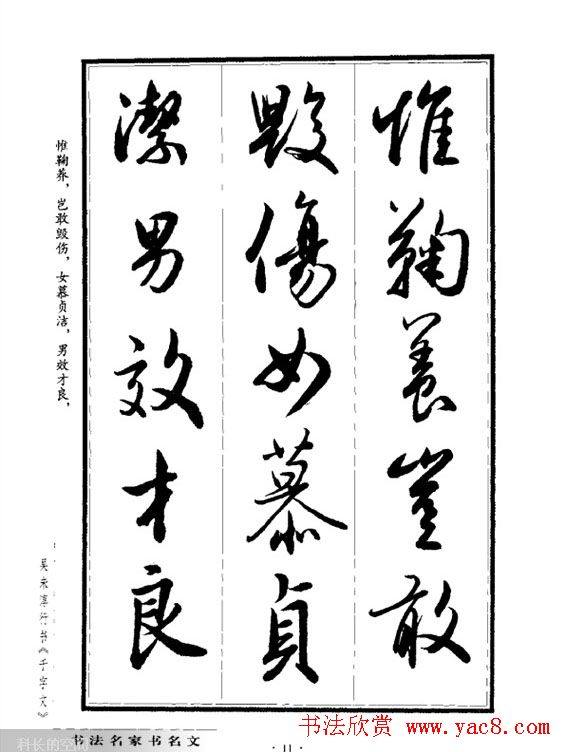 惟鞠養豈敢
毀傷女慕貞
潔男效才良
惟鞠养，岂敢毁伤，女慕贞洁，男效才良，
吴未淳行书《千字文》
科长的空间
书法名家书名文
·11·
书法欣赏 www.yac8.com